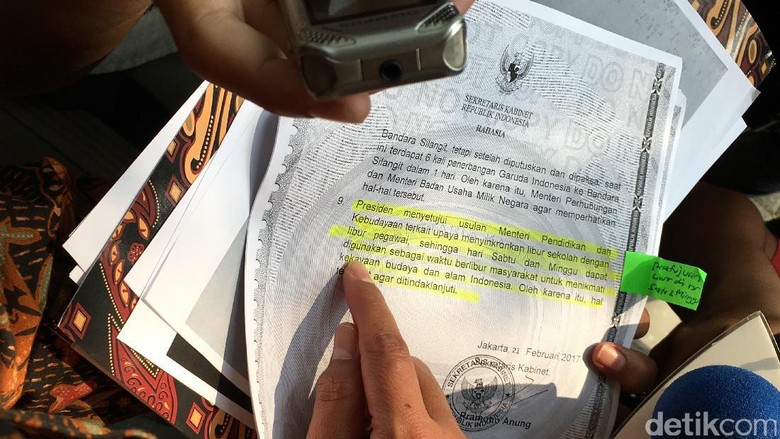 SEKRETARIS KABINET
REPUBLIK INDONESIA
RAHASIA
Bandara Silangit, tetapi setelah diputuskan dan dipaksa, saat
ini terdapat 6 kali penerbangan Garuda Indonesia ke Bandara
Silangit dalam 1 hari. Oleh karena itu, Menteri Perhubungan
dan Menteri Badan Usaha Milik Negara agar memperhatikan
hal-hal tersebut.
9. Presiden menyetujui usulan Menteri Pendidikan dan
Kebudayaan terkait upaya menyinkronkan libur sekolah dengan
libur pegawai, sehingga hari Sabtu dan Minggu dapat
digunakan sebagai waktu berlibur masyarakat untuk menikmati
kekayaan budaya dan alam Indonesia. Oleh karena itu, hal
agar ditindaklanjuti.
Jakarta, 21 Februari 2017
Sekretaris Kabinet,
SEKRETARIS KABINET
Pramono Anung
detikcom